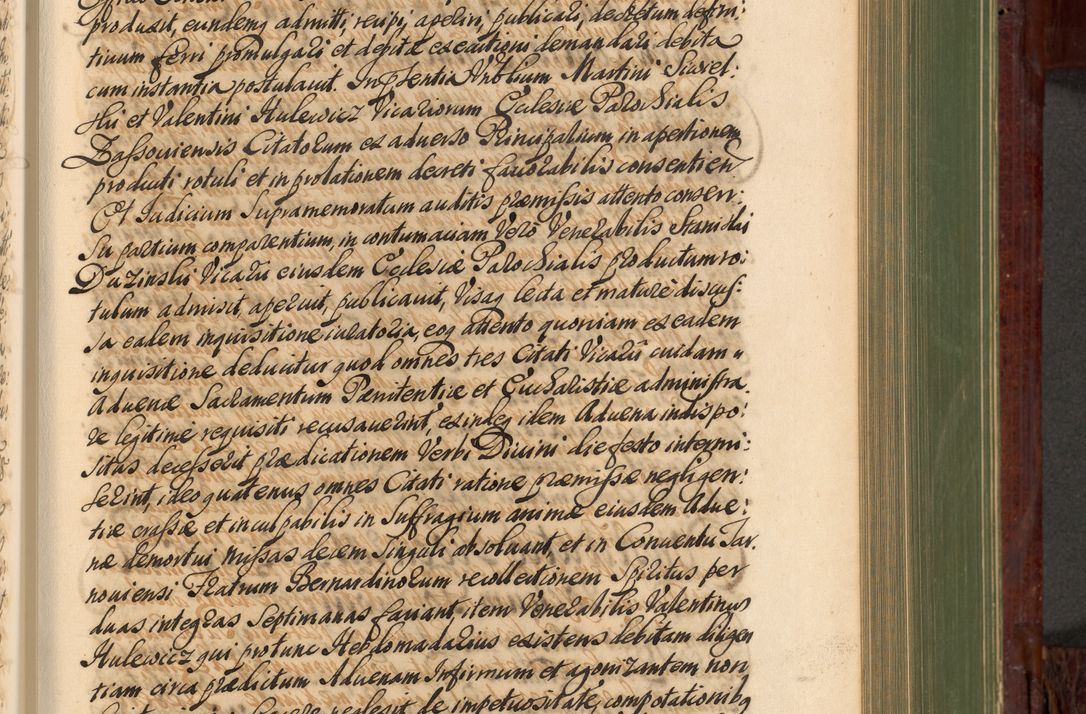 produxit, eundemq admitti, recipi, aperiri, publicari, decretum defini:
tivum ferri promulgari et debitæ executioni demandari debita
cum instantia postulavit. In pñsentia Vnblium Martini Siwel:
ski et Valentini Hulewicz Vicariorum Ecclesiæ Parochialis
Zassoviensis Citatorum ex adverso Principalium in apertionem
producti rotuli et in prolationem decreti favorabilis consentien
Et Judicium Supramemoratum auditis præmissis attento consen:
su partium comparentium, in contumaciam Vero Venerabilis Stanislai
Duzinski Vicarii eiusdem Ecclesiæ Parochialis productum ro:
tulum admisit, aperuit, publicavit, Visaq lecta et mature discus:
sa eadem inquisitione iuratoria, eoq attento quoniam ex eadem
inquisitione deducitur quod omnes tres Citati Vicarii cuidam
Advenæ Sacramentum Pænitentiæ et Eucharistiæ administra
re legitime requisiti recusaverint, exindeq idem Advena indispo:
situs decesserit prædicationem Verbi Divini die festo intermi:
serint, ideo quatenus omnes Citati ratione præmissæ negligen:
tiæ crassæ et inculpabilis in Suffragium animæ eiusdem Adve:
næ demortui Missas decem Singuli absolvant, et in Conventu Tar.
noviensi Fratrum Bernardinorum recollectionem Spiritus per
duas integras Septimanas faciant, item Venerabilis Valentinus
Hulewicz qui protunc Hebdomadarius existens debitam diligen
tiam circa prædictum Advenam Infirmum et agonizantem non
de impetuositate, compotationibq